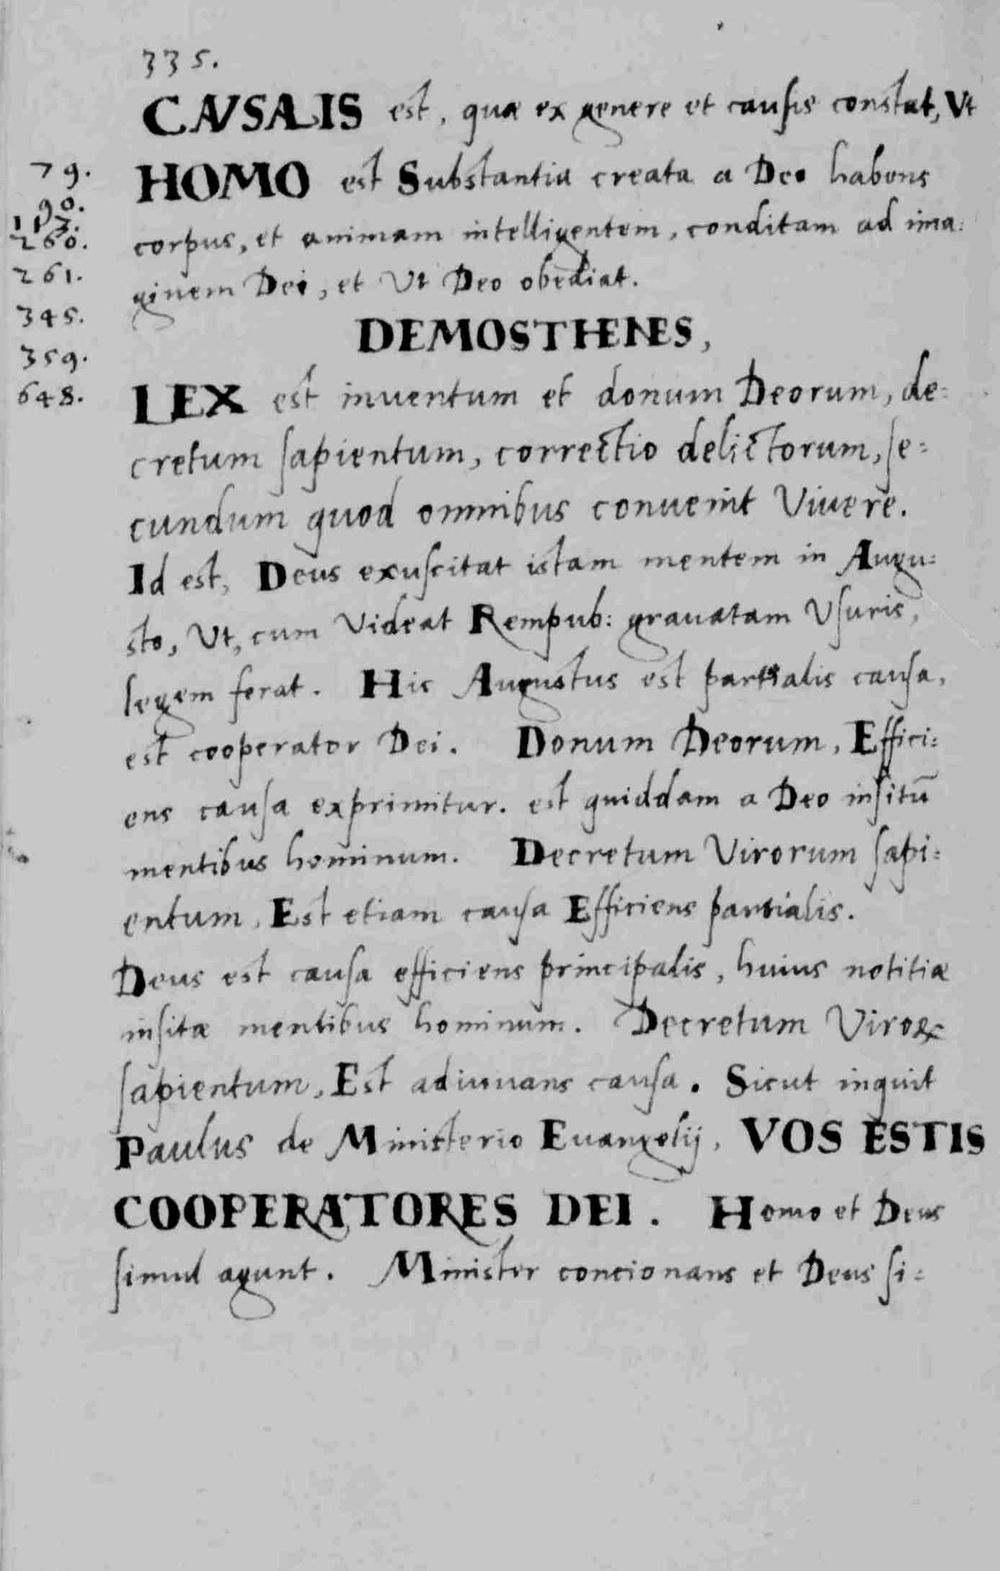 335.
CAUSALIS est, quæ ex genere et causis constat, Ut
79.
HOMO est Substantia creata a Deo habens
90.
117.
260.
corpus, et animam intelligentem, conditam ad ima:
261.
ginem Dei, et Ut Deo obediat.
345.
DEMOSTHENES,
359.
648.
LEX est inuentum et donum Deorum, de:
cretum sapientum, correctio delictorum, se:
cundum quod omnibus conuenit Viuere.
Id est, Deus exuscitat istam mentem in Augu:
sto, Ut, cum Videat Rempub: grauatam Usuris,
legem ferat. Hic Augustus est partialis causa,
est cooperator Dei. Donum Deorum, Effici:
ens causa exprimitur. est quiddam a Deo insitū
mentibus hominum. Decretum Virorum sapi:
entum, Est etiam causa Efficiens partialis.
Deus est causa efficiens principalis, huius notitiæ
insitæ mentibus hominum. Decretum Viroꝝ
sapientum, Est adiuuans causa. Sicut inquit
Paulus de Ministerio Euangelij, VOS ESTIS
COOPERATORES DEI. Homo et Deus
simul agunt. Minister concionans et Deus si: